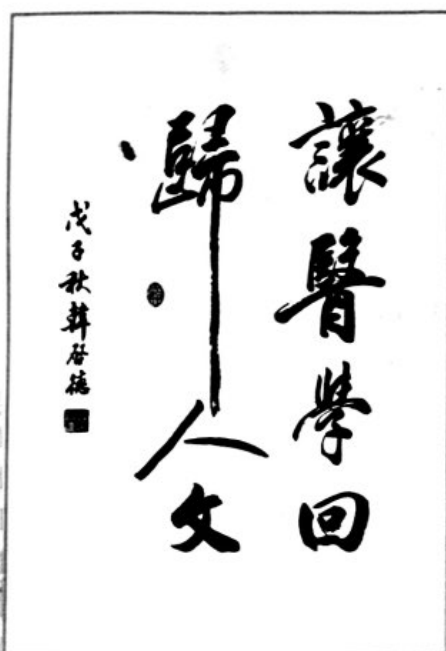 讓醫學回
歸人文
戊子秋韓啓德